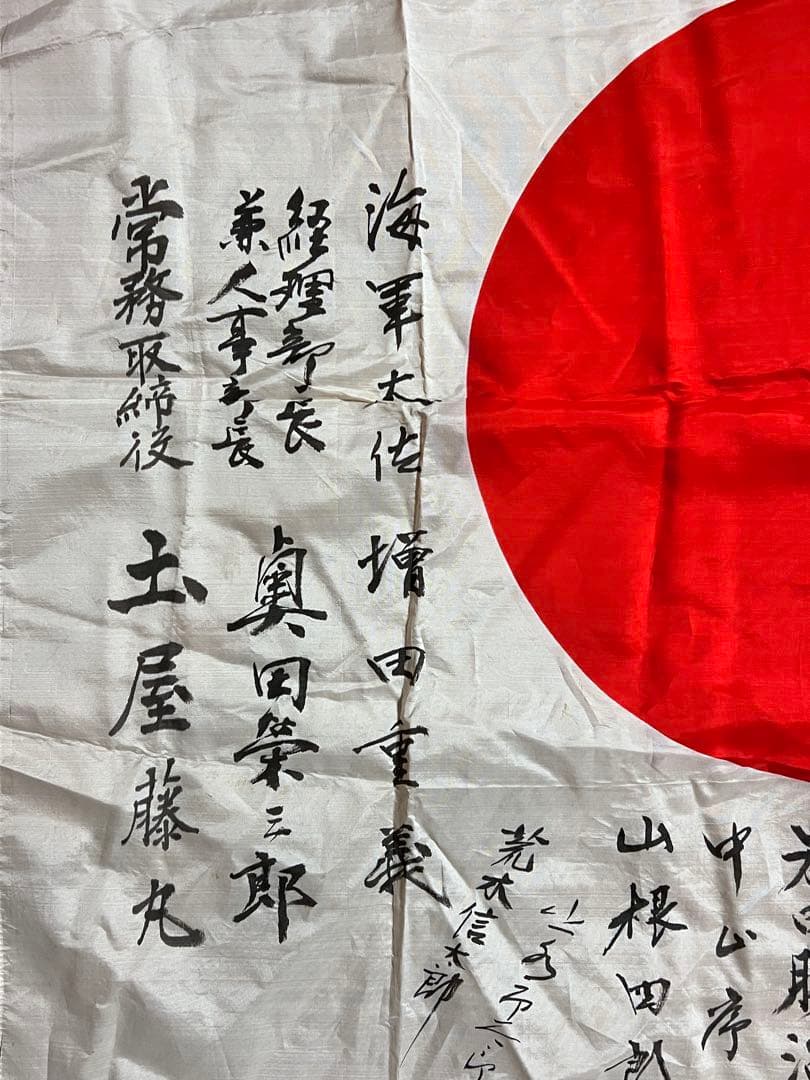 中山序
山根四郎
荒木信太郎
海軍大佐 増田重義
経理部長
兼人事部長 奥田榮三郎
常務取締役 土屋藤丸